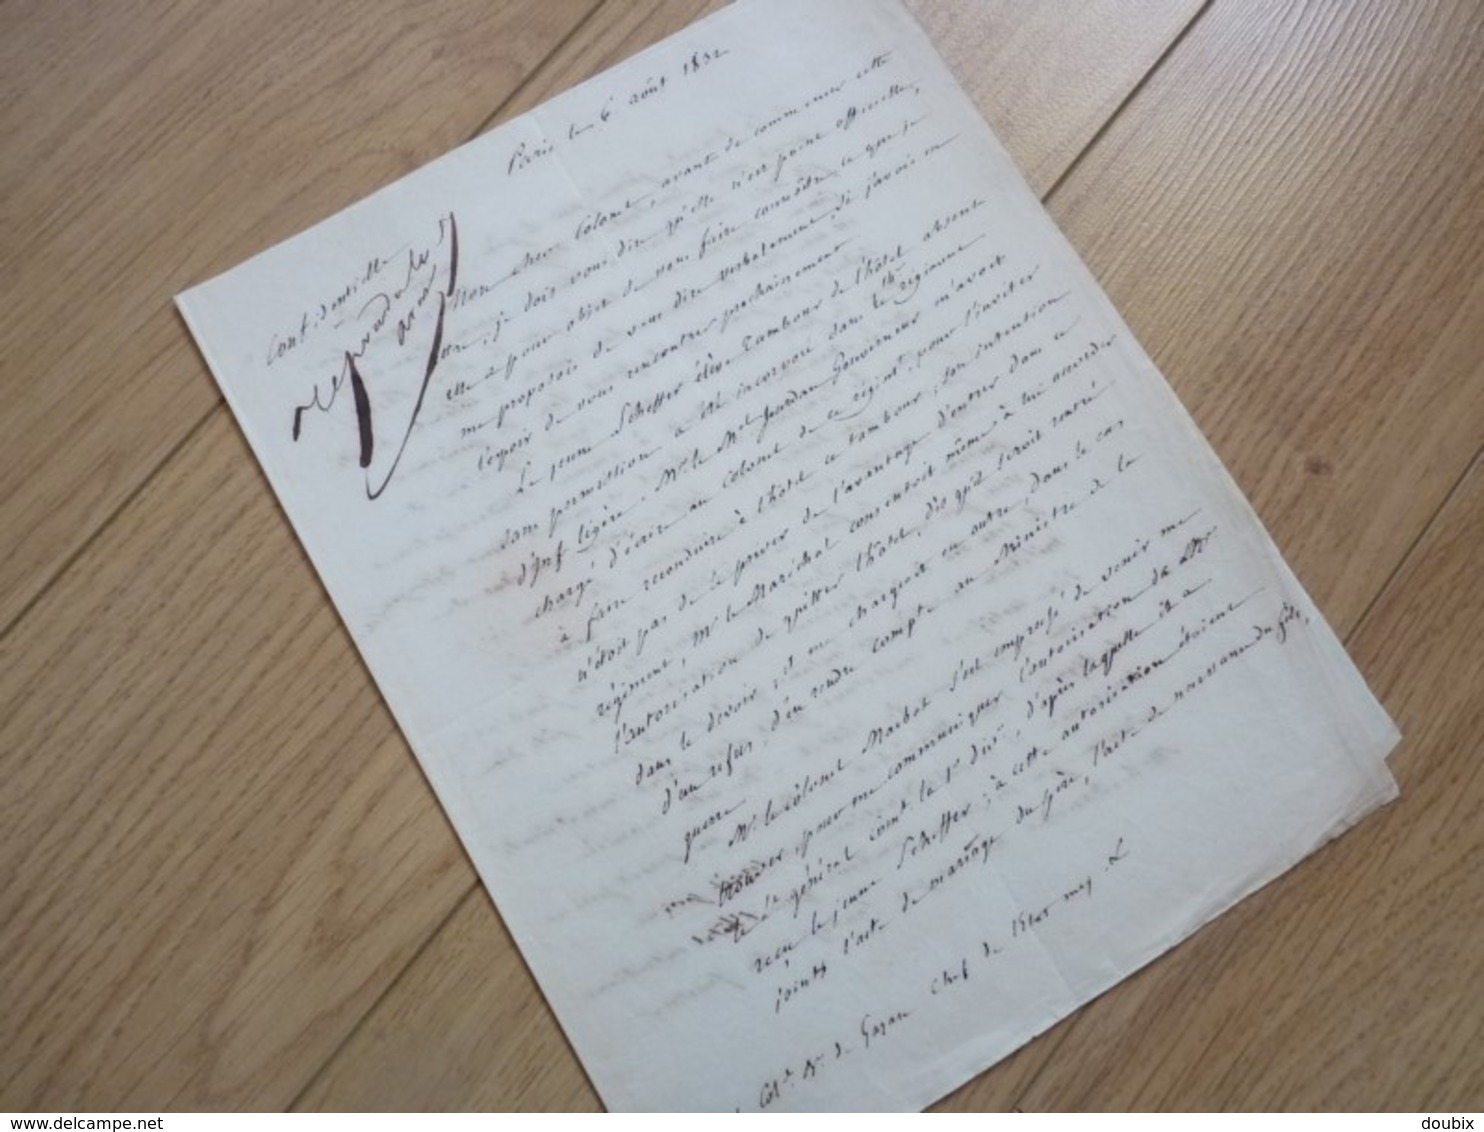 Paris le 6 août 1832
Confidentielle
Mon cher Colonel, avant de commencer cette
lettre, je dois vous dire qu'elle n'est point officielle,
elle a pour objet de vous faire connoître ce que je
me proposois de vous dire verbalement, si j'avois eu
l'espoir de vous rencontrer prochainement.
Le jeune Scheffer élève Tambour de l'hôtel absent
sans permission a été incorporé dans le régiment
d'Inf. légère. Mr. le Mal. Jourdan Gouverneur m'avoit
chargé, d'écrire au Colonel de ce régimt. pour l'inviter
à faire reconduire à l'hôtel ce tambour; son intention
n'étoit pas de le priver de l'avantage d'entrer dans ce
régiment, Mr. le Maréchal consentoit même à lui accorder
l'autorisation de quitter l'hôtel, dès qu'il seroit rentré
dans le devoir; il me chargeoit en outre, dans le cas
d'un refus, d'en rendre compte au Ministre de la
guerre.
Mr. le Colonel Marbot s'est empressé de venir me
trouver, pour me communiquer l'autorisation de Mr.
le Lt. général Comt. la 1e. divon., d'après laquelle il a
reçu le jeune Scheffer; à cette autorisation étoient
joints l'acte de mariage du père, l'acte de naissance du fils,
Mr. de Gazan chef de
www.delcampe.net
doubix